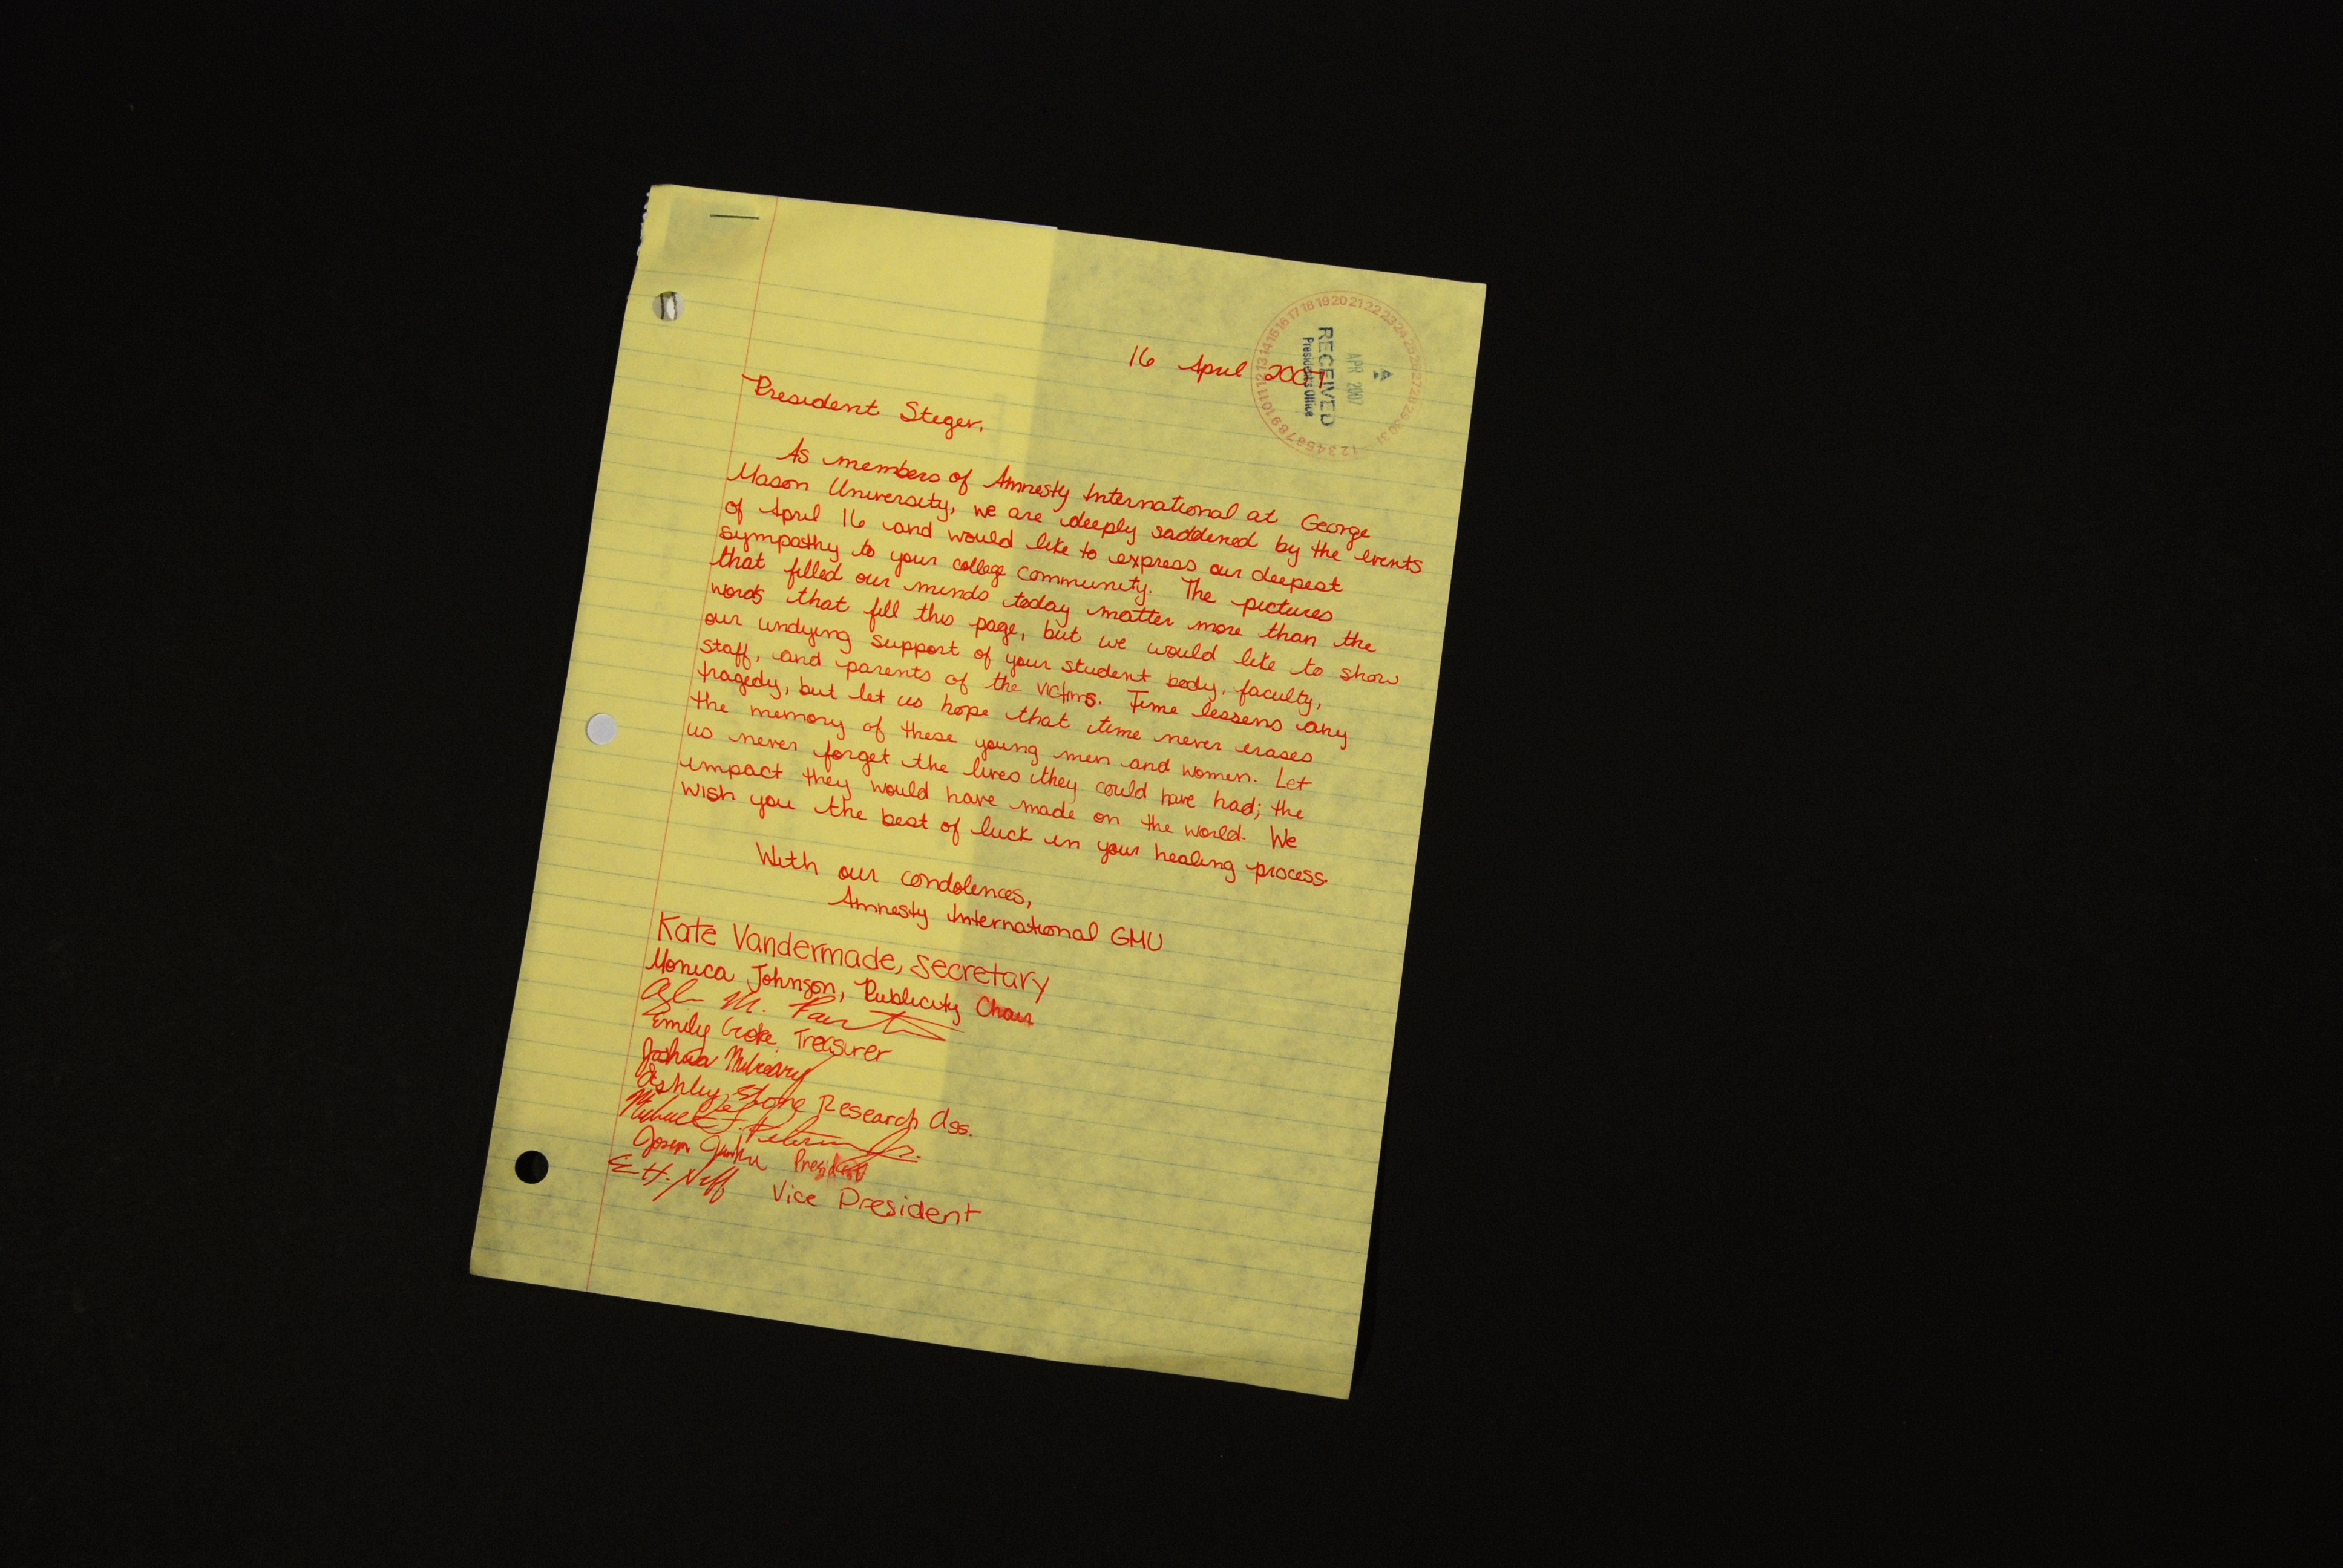 16 April 2007
RECEIVED
President's Office
APR 2007
1 2 3 4 5 6 7 8 9 10 11 12 13 14 15 16 17 18 19 20 21 22 23 24 25 26 27 28 29 30 31
President Steger,
As members of Amnesty International at George
Mason University, we are deeply saddened by the events
of April 16 and would like to express our deepest
sympathy to your college community. The pictures
that filled our minds today matter more than the
words that fill this page, but we would like to show
our undying support of your student body, faculty,
staff, and parents of the victims. Time lessens any
tragedy, but let us hope that time never erases
the memory of these young men and women. Let
us never forget the lives they could have had; the
impact they would have made on the world. We
wish you the best of luck in your healing process.
With our condolences,
Amnesty International GMU
Kate Vandermade, Secretary
Monica Johnson, Publicity Chair
M.
Emily Treasurer
Joshua
Ashley Stone Research Ass.
Michael Jr.
President
E H. Neff Vice President